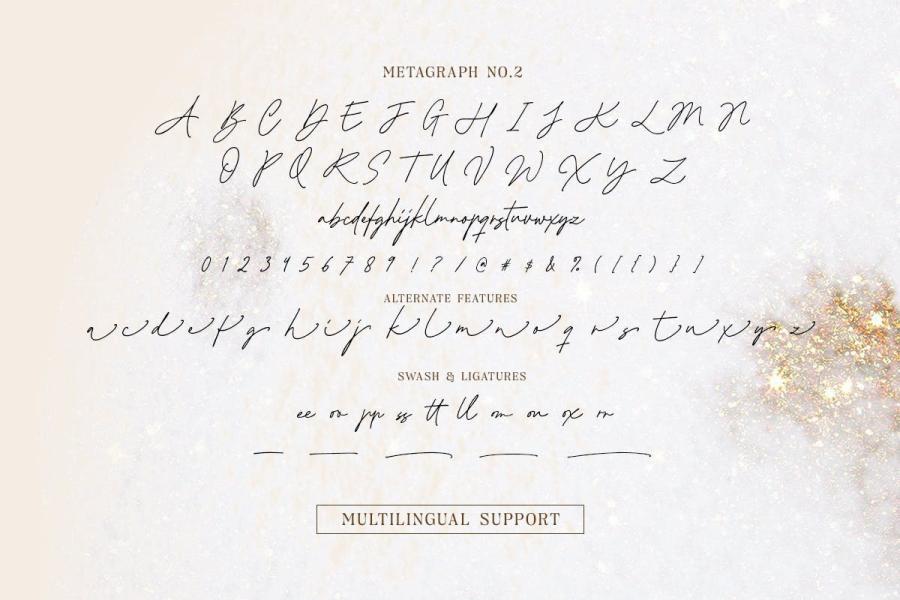 METAGRAPH NO.2
A B C D E F G H I J K L M N
O P Q R S T U V W X Y Z
abcdefghijklmnopqrstuvwxyz
0 1 2 3 4 5 6 7 8 9 ! ? / @ # $ & % ( [ { ) } ]
ALTERNATE FEATURES
a c d e f g h i j k l m n o q r s t u x y z
SWASH & LIGATURES
ee oo pp ss tt ll om on ox rn
MULTILINGUAL SUPPORT